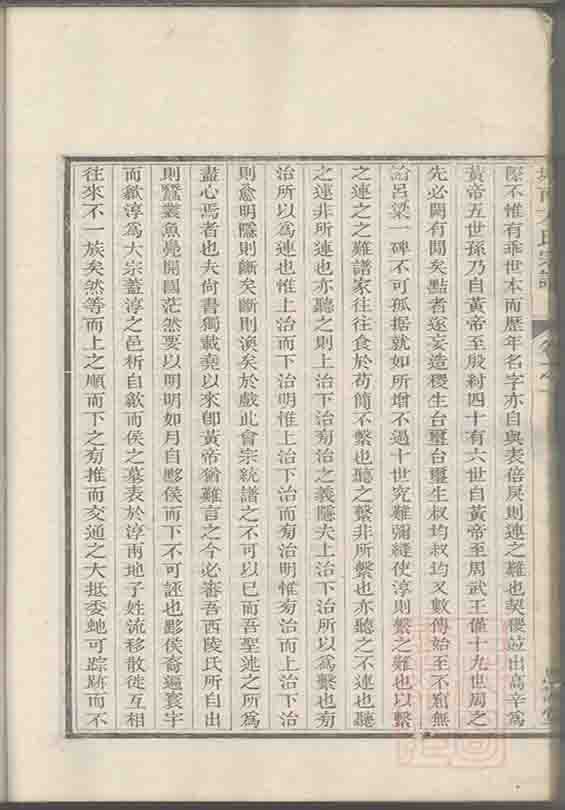 際不惟有乖世本而歷年名字亦自與表倍戾則連之難也契稷竝出高辛為
黃帝五世孫乃自黃帝至殷紂四十有六世自黃帝至周武王僅十九世周之
先必闕有聞矣點者遂妄造稷生台璽台璽生叔均叔均又數傳始至不窋無
論呂梁一碑不可孤据就如所增不過十世究難彌縫使淳則繫之難也以繫
之連之之難譜家往往食於苟簡不繫也聽之繫非所繫也亦聽之不連也聽
之連非所連也亦聽之則上治下治㫄治之義隱夫上治下治所以為繫也㫄
治所以為連也惟上治而下治明惟上治下治而㫄治明惟㫄治而上治下治
則愈明隱則斷矣斷則渙矣於戲此會宗統譜之不可以已而吾聖涟之所為
盡心焉者也夫尚書獨載堯以來卽黃帝猶難言之今必審吾西陵氏所自出
則蠶叢魚鳧開國茫然要以明明如月自黟侯而下不可誣也黟侯裔遍寰宇
而歙淳為大宗蓋淳之邑析自歙而侯之墓表於淳兩地子姓流移散徙互相
往來不一族矣然等而上之順而下之㫄推而交通之大抵委虵可踪跡而不